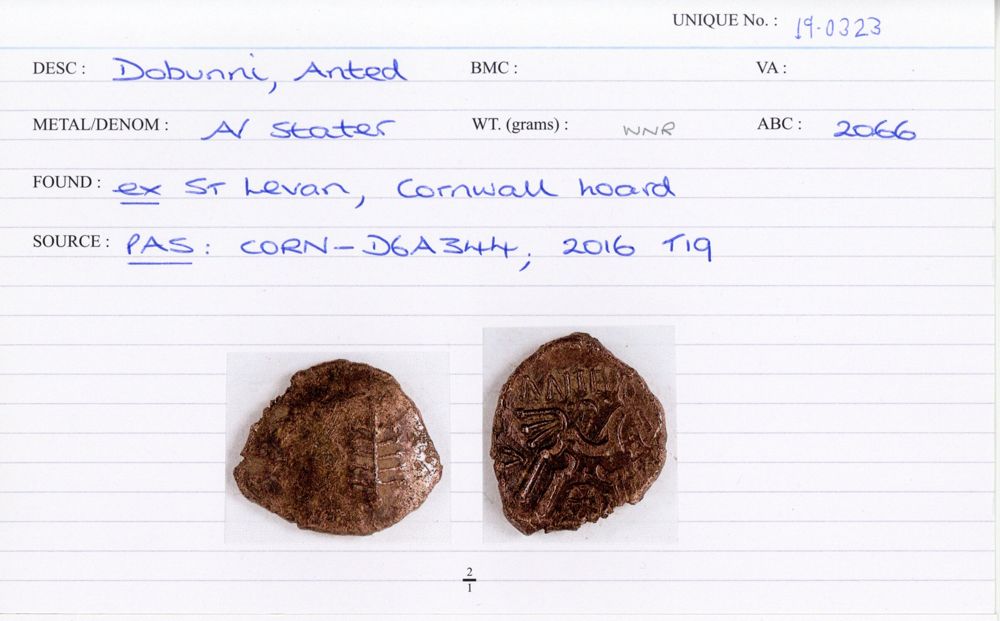 UNIQUE No. : 19.0323
DESC : Dobunni, Anted BMC : VA :
METAL/DENOM : AV Stater WT. (grams) : WNR ABC : 2066
FOUND : ex St Levan, Cornwall hoard
SOURCE : PAS : CORN-D6A344; 2016 T19
ANTE
2
1